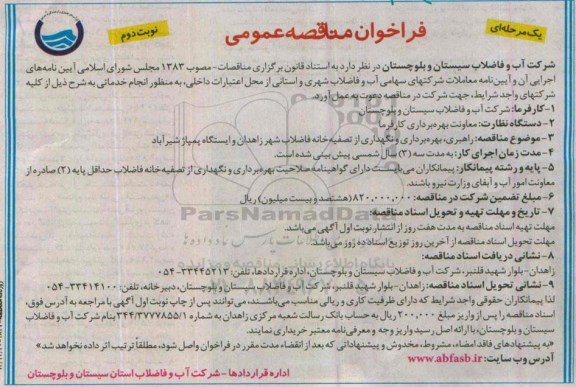 یک مرحله‌ای
فراخوان مناقصه عمومی
نوبت دوم
شرکت آب و فاضلاب سیستان و بلوچستان در نظر دارد به استناد قانون برگزاری مناقصات- مصوب ۱۳۸۳ مجلس شورای اسلامی آیین نامه‌های
اجرایی آن و آیین‌نامه معاملات شرکتهای سهامی آب و فاضلاب شهری و استانی از محل اعتبارات داخلی، به منظور انجام خدماتی به شرح ذیل از کلیه
شرکتهای واجد شرایط، جهت شرکت در مناقصه دعوت به عمل آورد.
۱-کارفرما: شرکت آب و فاضلاب سیستان و بلوچستان
۲- دستگاه نظارت: معاونت بهره‌برداری کارفرما
۳-موضوع مناقصه: راهبری، بهره‌برداری و نگهداری از تصفیه‌خانه فاضلاب شهر زاهدان و ایستگاه پمپاژ شیرآباد
۴-مدت زمان اجرای کار: به مدت سه (۳) سال شمسی پیش بینی شده است.
۵- پایه و رشته پیمانکار: پیمانکاران می‌بایست دارای گواهینامه صلاحیت بهره‌برداری و نگهداری از تصفیه‌خانه فاضلاب حداقل پایه (۲) صادره از
معاونت امور آب و آبفای وزارت نیرو باشند.
۶- مبلغ تضمین شرکت در مناقصه: ۸۲۰,۰۰۰,۰۰۰ (هشتصد و بیست میلیون) ریال
۷- تاریخ و مهلت تهیه و تحویل اسناد مناقصه:
مهلت تهیه اسناد مناقصه به مدت هفت روز از انتشار نوبت اول آگهی می‌باشد.
مهلت تحویل اسناد مناقصه از آخرین روز توزیع اسناد ده روز می‌باشد.
۸- نشانی دریافت اسناد مناقصه:
زاهدان- بلوار شهید قلنبر، شرکت آب و فاضلاب سیستان و بلوچستان، اداره قراردادها، تلفن: ۳۳۴۴۵۲۱۳-۰۵۴
۹- نشانی تحویل اسناد مناقصه: زاهدان- بلوار شهید قلنبر، شرکت آب و فاضلاب سیستان و بلوچستان، دبیرخانه، تلفن: ۳۳۴۱۴۱۰۰-۰۵۴
لذا پیمانکاران حقوقی واجد شرایط که دارای ظرفیت کاری و ریالی مناسب می‌باشند، می‌توانند پس از چاپ نوبت اول آگهی با مراجعه به آدرس فوق،
اسناد مناقصه را پس از واریز مبلغ ۲۰۰,۰۰۰ ریال به حساب بانک رسالت شعبه مرکزی زاهدان به شماره ۳۴۴/۳۷۷۷۸۵۵/۱ بنام شرکت آب و فاضلاب
سیستان و بلوچستان، با ارائه اصل رسید واریز وجه و معرفی‌نامه معتبر خریداری نمایند.
«به پیشنهادهای فاقد امضاء، مشروط، مخدوش و پیشنهاداتی که بعد از انقضاء مدت مقرر در فراخوان واصل شود، مطلقاً ترتیب اثر داده نخواهد شد»
آدرس وب سایت: www.abfasb.ir
اداره قراردادها - شرکت آب و فاضلاب استان سیستان و بلوچستان
ParsNamadData